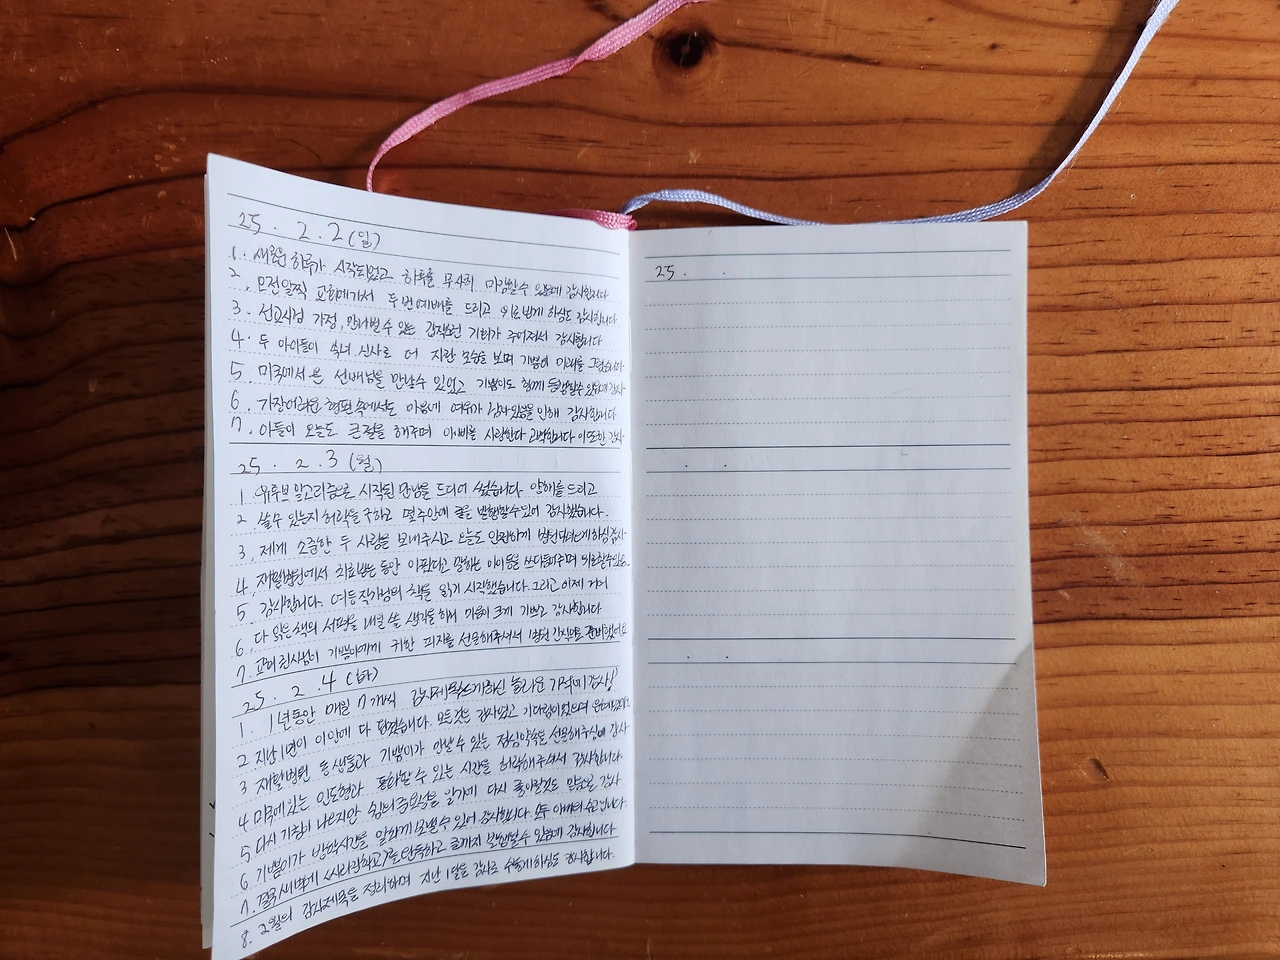 25. 2. 2 (일)
1. 새로운 하루가 시작되었고 하루를 무사히 마감할 수 있음에 감사합니다
2. 오전 일찍 교회에 가서 두 번 예배를 드리고 하심도 감사합니다
3. 선교사님 가정, 만나뵐 수 있는 기회가 주어져서 감사합니다
4. 두 아이들이 숙녀, 신사로 더 자란 모습을 보며 기쁨의 미래를
5. 미국에서 온 선배님을 만날 수 있었고 기쁨이도 함께 감사
6. 가장 어려운 형편 속에서도 마음에 여유가 있음을 인해 감사합니다
7. 아들이 오늘도 큰절을 해주며 아비를 사랑한다 고백합니다 이 또한 감사
25. 2. 3 (월)
1. 유튜브 알고리즘으로 시작된 만남을 드디어 썼습니다. 양해를 드리고
2. 쓸 수 있는지 허락을 구하고 몇 주 만에 글을 발행할 수 있어 감사했습니다.
3. 제게 소중한 두 사람을 보내주시고 오늘도 안전하게 하심 감사
4. 재활병원에서 치료받는 동안 아프다고 말하는 아이들을 쓰다듬어주며 위로할 수 있음
5. 감사합니다. 작가님의 책을 읽기 시작했습니다. 그리고 이제 거의
6. 다 읽은 책의 서평을 내일 쓸 생각을 하며 기쁨이 크게 기쁘고 감사합니다
7. 교회 권사님이 기쁨이에게 귀한 피자를 선물해주셔서 간식으로 준비했어요
25. 2. 4 (화)
1. 1년 동안 매일 7개씩 감사제목을 쓰게 하신 놀라운 기적에 감사!
2. 지난 1년이 이 안에 다 담겼습니다. 모든 것은 감사였고 기다림이었으며
3. 재활병원 동생들과 기쁨이가 만날 수 있는 점심약속을 선물해주심에 감사
4. 미국에 있는 인도형과 통화할 수 있는 시간을 허락해주셔서 감사합니다.
5. 다시 기침이 나오지만 쉼의 중요성을 알기에 다시 좋아질 것도 믿음으로 감사
6. 기쁨이가 방학시간을 알차게 보낼 수 있어 감사합니다. 모두 아내의 수고입니다.
7. 결국 새벽에 완독하고 글까지 발행할 수 있음에 감사합니다
8. 2월의 감사제목을 정리하며 지난 1달을 감사로 수놓게 하심도 감사합니다.
25. . .
. .
. .